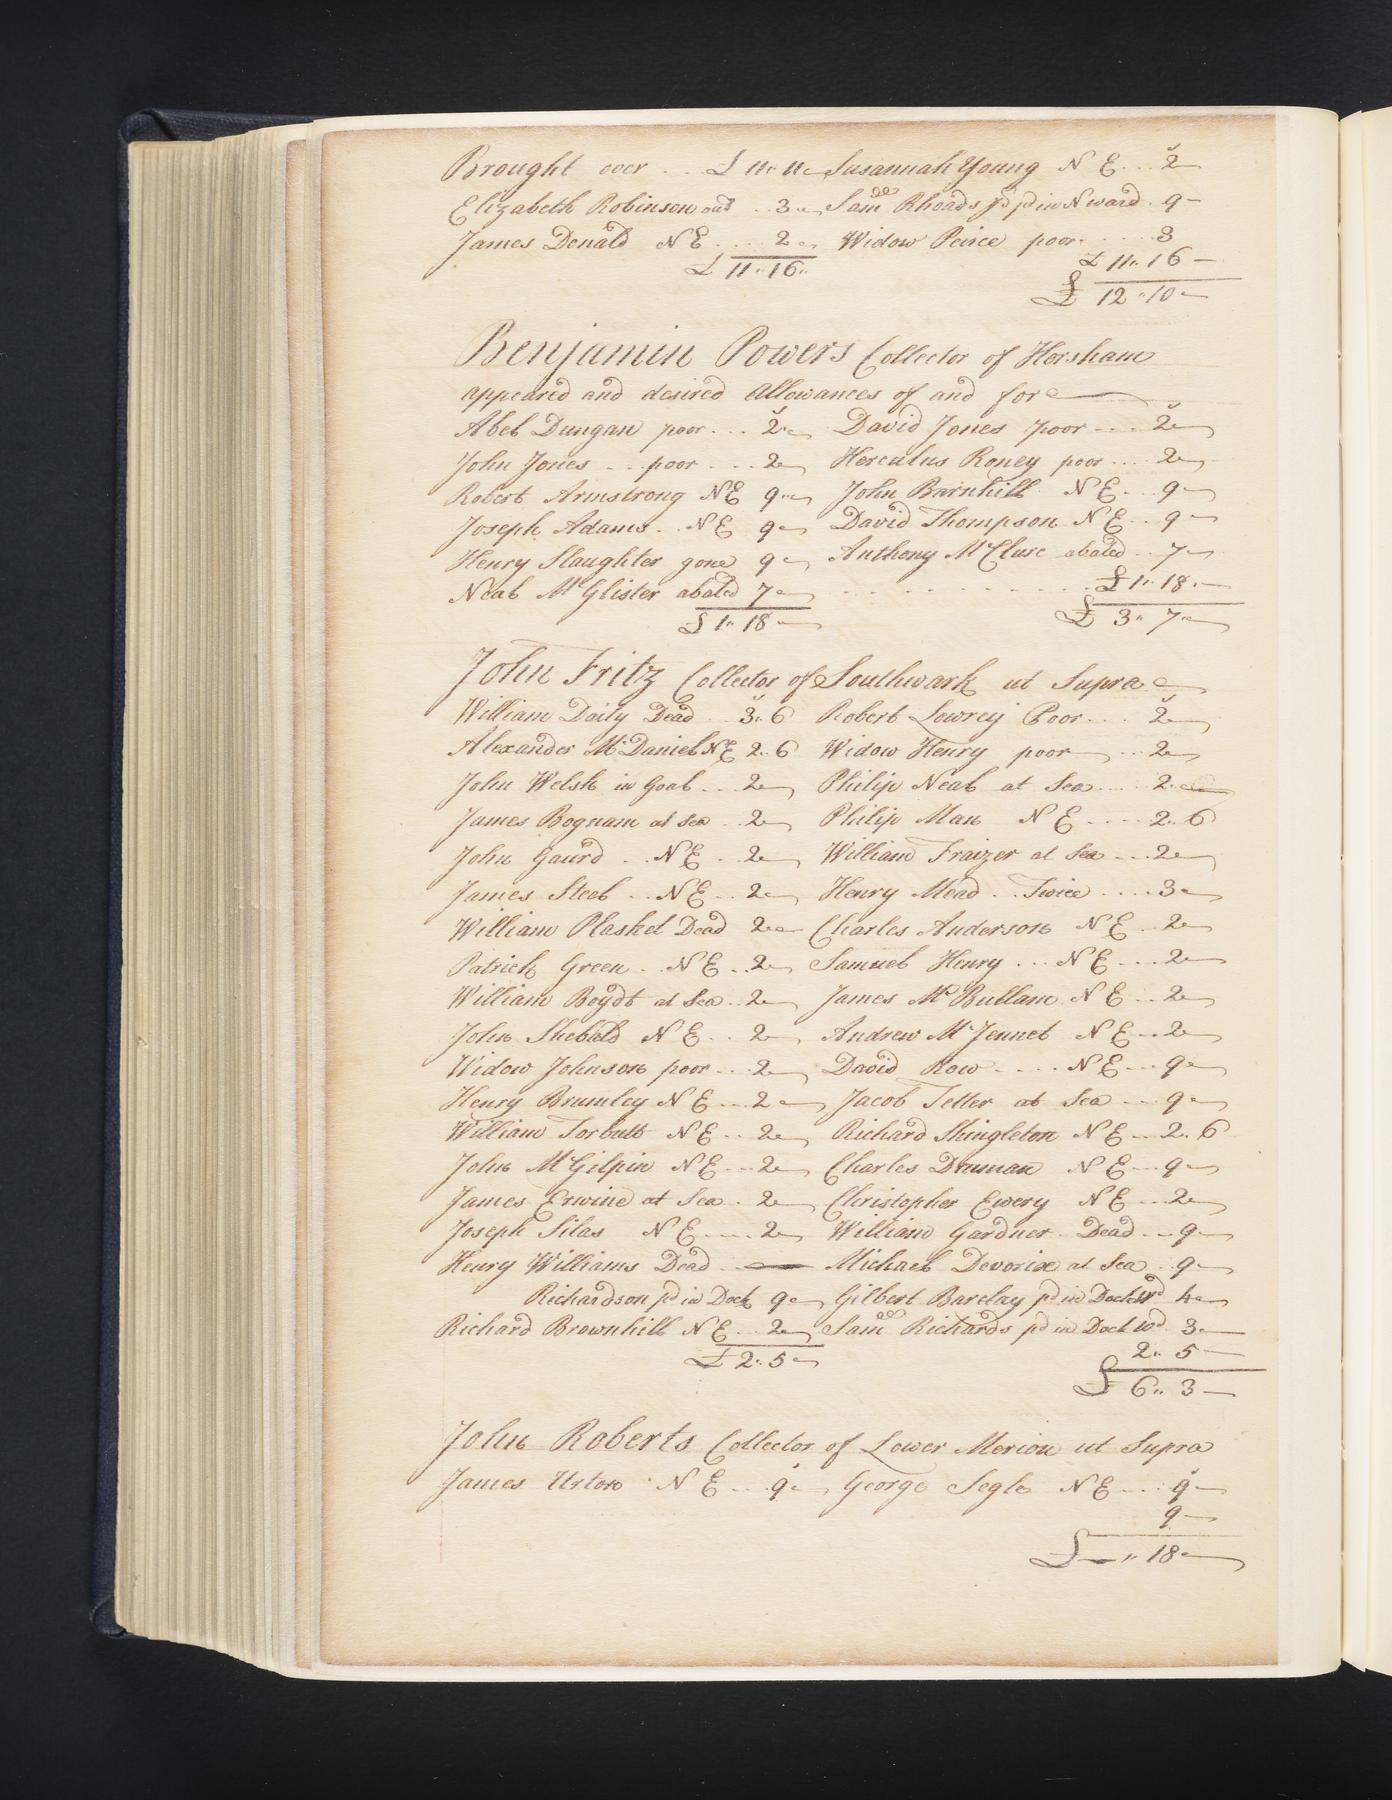 Brought over . . . £ 11" 11 Susannah Young N E . . . 2
Elizabeth Robinson out . . 3 Sam Rhoads pd in N ward . 9
James Donald N E . . . . 2 Widow Peirce poor . . . . . 3
£ 11" 16" £ 11" 16
£ 12" 10
Benjamin Powers Collector of Horsham
appeared and desired Allowances of and for
Abel Dungan poor . . . 2 David Jones poor . . . . 2
John Jones . . . poor . . . 2 Herculus Roney poor . . . . 2
Robert Armstrong NE 9 John Barnhill N E . . . 9
Joseph Adams . . N E 9 David Thompson N E . . 9
Henry Slaughter gone 9 Anthony McClure abated . . 7
Neal McGlister abated 7 . . . . . . . . . £ 1" 18
£ 1" 18 £ 3" 7
John Fritz Collector of Southwark ut Supra
William Daily Dead . . 3" 6 Robert Lowrey Poor . . . 2
Alexander McDaniel NE 2" 6 Widow Henry poor . . . 2
John Welsh in Goal . . . 2 Philip Neal at Sea . . . . 2
James Bognam at Sea . . 2 Philip Man N E . . . . . 2" 6
John Gaurd . . N E . . 2 William Fraizer at Sea . . . 2
James Steel . . N E . . 2 Henry Mead . . Twice . . . . 3
William Plasket Dead 2 Charles Anderson N E . . 2
Patrick Green . . N E . . 2 Samuel Henry . . . N E . . . 2
William Boydt at Sea . . 2 James McBullam N E . . . 2
John Shebald N E . . . 2 Andrew McJennet N E . . . 2
Widow Johnson poor . . . 2 David Row . . . . . N E . . . 9
Henry Brumley N E . . . 2 Jacob Teller at Sea . . . 9
William Torbutt N E . . . 2 Richard Shingleton N E . . . 2" 6
John McGilpin N E . . . 2 Charles Druman N E . . . 9
James Erwine at Sea . . 2 Christopher Ewery N E . . . 2
Joseph Silas N E . . . . 2 William Gardner . Dead . . . 9
Henry Williams Dead . . — Michael Devorix at Sea . . 9
Richardson pd in Dock 9 Gilbert Barclay pd in Dock Wd 4
Richard Brownhill N E . . . 2 Sam Richards pd in Dock Wd . 3
£ 2" 5 2" 5
£ 6" 3
John Roberts Collector of Lower Merion ut Supra
James Urton . N E . . . 9 George Segle N E . . . . 9
9
£ — " 18